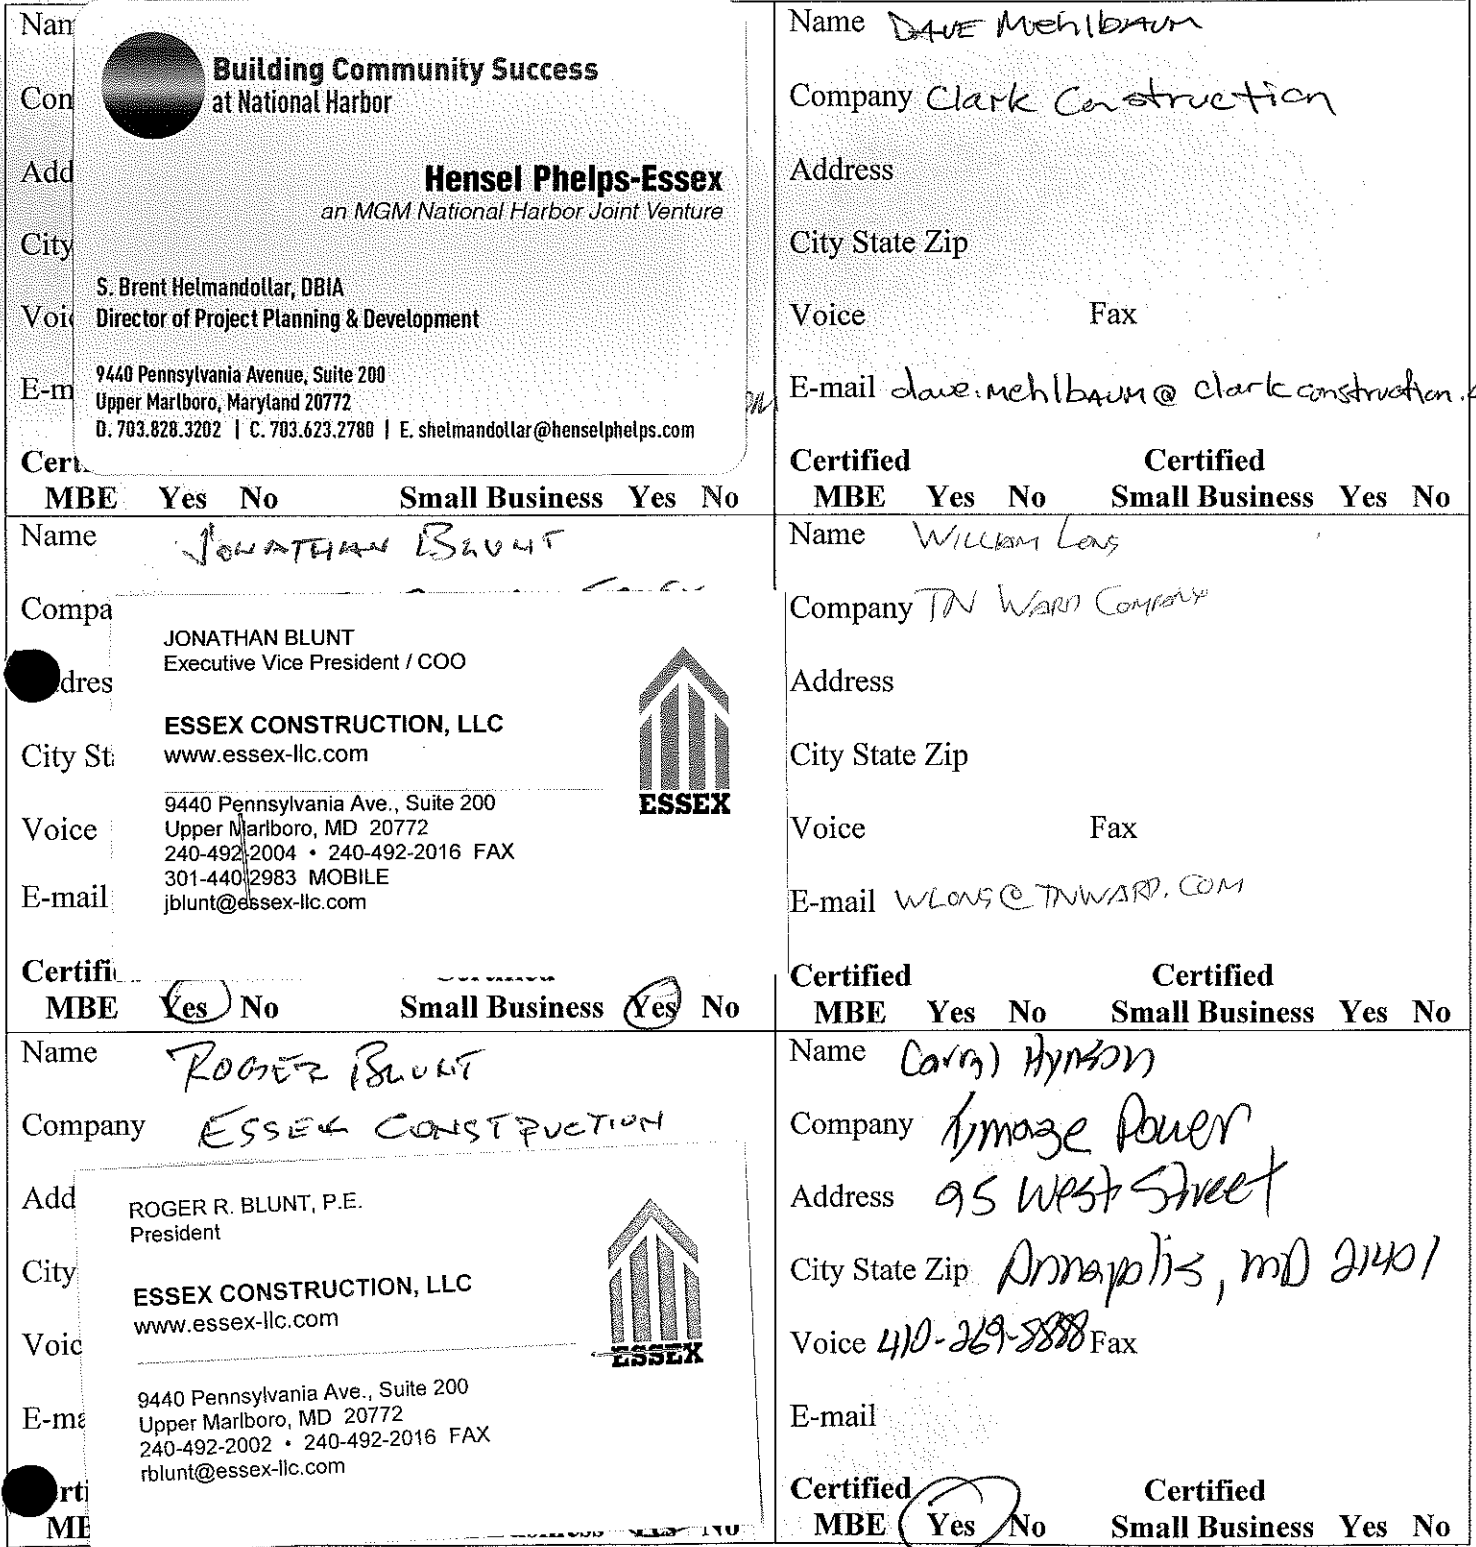 Nam
Building Community Success
at National Harbor
Con
Add
Hensel Phelps-Essex
an MGM National Harbor Joint Venture
City
S. Brent Helmandollar, DBIA
Voic
Director of Project Planning & Development
9440 Pennsylvania Avenue, Suite 200
E-m
Upper Marlboro, Maryland 20772
D. 703.828.3202 | C. 703.623.2780 | E. shelmandollar@henselphelps.com
Cert
MBE Yes No Small Business Yes No
Name DAVE Mehlbaum
Company Clark Construction
Address
City State Zip
Voice Fax
E-mail dave.mehlbaum@clarkconstruction.
Certified Certified
MBE Yes No Small Business Yes No
Name JONATHAN BLUNT
Compa
JONATHAN BLUNT
Executive Vice President / COO
dres
ESSEX CONSTRUCTION, LLC
www.essex-llc.com
City St
ESSEX
9440 Pennsylvania Ave., Suite 200
Voice
Upper Marlboro, MD 20772
240-492-2004 • 240-492-2016 FAX
301-440-2983 MOBILE
E-mail
jblunt@essex-llc.com
Certifi
MBE Yes No Small Business Yes No
Name WILLIAM LONG
Company TN WARD COMPANY
Address
City State Zip
Voice Fax
E-mail WLONG@TNWARD.COM
Certified Certified
MBE Yes No Small Business Yes No
Name ROGER BLUNT
Company ESSEX CONSTRUCTION
Add
ROGER R. BLUNT, P.E.
President
City
ESSEX CONSTRUCTION, LLC
www.essex-llc.com
Voic
ESSEX
9440 Pennsylvania Ave., Suite 200
E-ma
Upper Marlboro, MD 20772
240-492-2002 • 240-492-2016 FAX
rblunt@essex-llc.com
rti
ME
Name Carrol Hynson
Company Image Power
Address 95 West Street
City State Zip Annapolis, MD 21401
Voice 410-269-8888 Fax
E-mail
Certified Certified
MBE Yes No Small Business Yes No